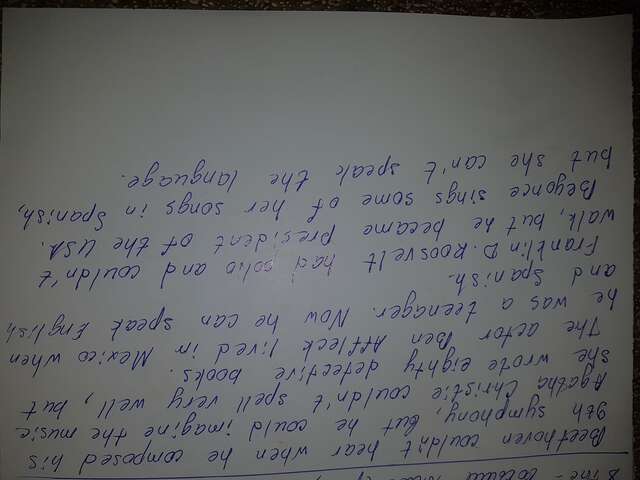 Beethoven couldn't hear when he composed his
9th symphony, but he could imagine the music
Agatha Christie couldn't spell very well, but
she wrote eighty detective books.
The actor Ben Affleck lived in Mexico when
he was a teenager. Now he can speak English
and Spanish.
Franklin D. Roosvelt had polio and couldn't
walk, but he became President of the USA.
Beyonce sings some of her songs in Spanish,
but she can't speak the language.